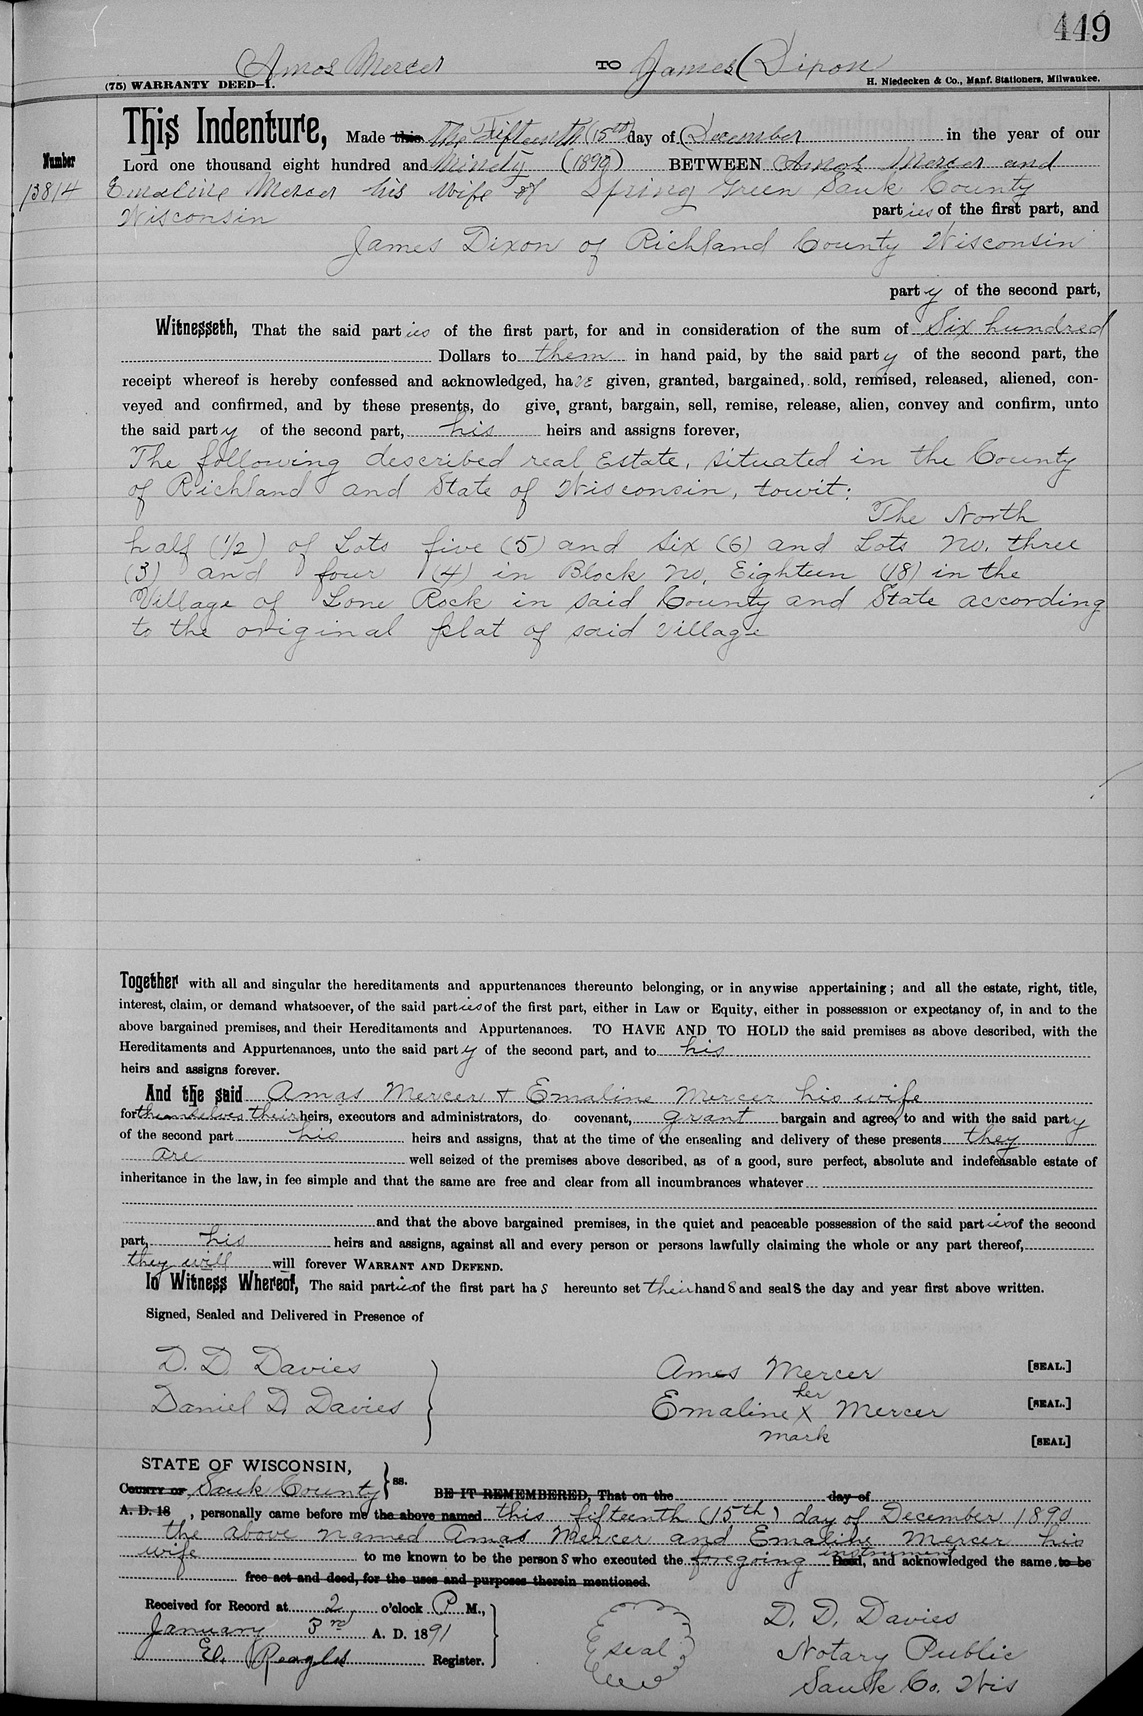 449
Amos Mercer TO James Dixon
(75) WARRANTY DEED—1. H. Niedecken & Co., Manf. Stationers, Milwaukee.
This Indenture, Made this the Fifteenth (15th) day of December in the year of our
Number
Lord one thousand eight hundred and Ninety (1890) BETWEEN Amos Mercer and
13814 Emaline Mercer his wife of Spring Green Sauk County
Wisconsin parties of the first part, and
James Dixon of Richland County Wisconsin
party of the second part,
Witnesseth, That the said parties of the first part, for and in consideration of the sum of Six hundred
Dollars to them in hand paid, by the said party of the second part, the
receipt whereof is hereby confessed and acknowledged, have given, granted, bargained, sold, remised, released, aliened, con-
veyed and confirmed, and by these presents, do give, grant, bargain, sell, remise, release, alien, convey and confirm, unto
the said party of the second part, his heirs and assigns forever,
The following described real Estate, situated in the County
of Richland and State of Wisconsin, towit:
The North
half (1/2) of Lots five (5) and six (6) and Lots No. three
(3) and four (4) in Block No. Eighteen (18) in the
Village of Lone Rock in said County and State according
to the original plat of said Village
Together with all and singular the hereditaments and appurtenances thereunto belonging, or in anywise appertaining; and all the estate, right, title,
interest, claim, or demand whatsoever, of the said parties of the first part, either in Law or Equity, either in possession or expectancy of, in and to the
above bargained premises, and their Hereditaments and Appurtenances. TO HAVE AND TO HOLD the said premises as above described, with the
Hereditaments and Appurtenances, unto the said party of the second part, and to his
heirs and assigns forever.
And the said Amas Mercer & Emaline Mercer his wife
for themselves their heirs, executors and administrators, do covenant, grant bargain and agree, to and with the said party
of the second part his heirs and assigns, that at the time of the ensealing and delivery of these presents they
are well seized of the premises above described, as of a good, sure perfect, absolute and indefeasable estate of
inheritance in the law, in fee simple and that the same are free and clear from all incumbrances whatever
and that the above bargained premises, in the quiet and peaceable possession of the said parties of the second
part, his heirs and assigns, against all and every person or persons lawfully claiming the whole or any part thereof,
they will will forever WARRANT AND DEFEND.
In Witness Whereof, The said parties of the first part has hereunto set their hands and seals the day and year first above written.
Signed, Sealed and Delivered in Presence of
D. D. Davies Ames Mercer [SEAL.]
her
Daniel D. Davies Emaline X Mercer [SEAL.]
mark [SEAL]
STATE OF WISCONSIN,
County of Sauk County ss. BE IT REMEMBERED, That on the day of
A. D. 18 , personally came before me the above named this fifteenth (15th) day of December 1890
the above named Amas Mercer and Emaline Mercer his
wife to me known to be the persons who executed the foregoing Deed, instrument and acknowledged the same to be
free act and deed, for the uses and purposes therein mentioned.
Received for Record at 2 o'clock P M., D. D. Davies
January 3rd A. D. 1891 seal Notary Public
Register. Sauk Co. Wis